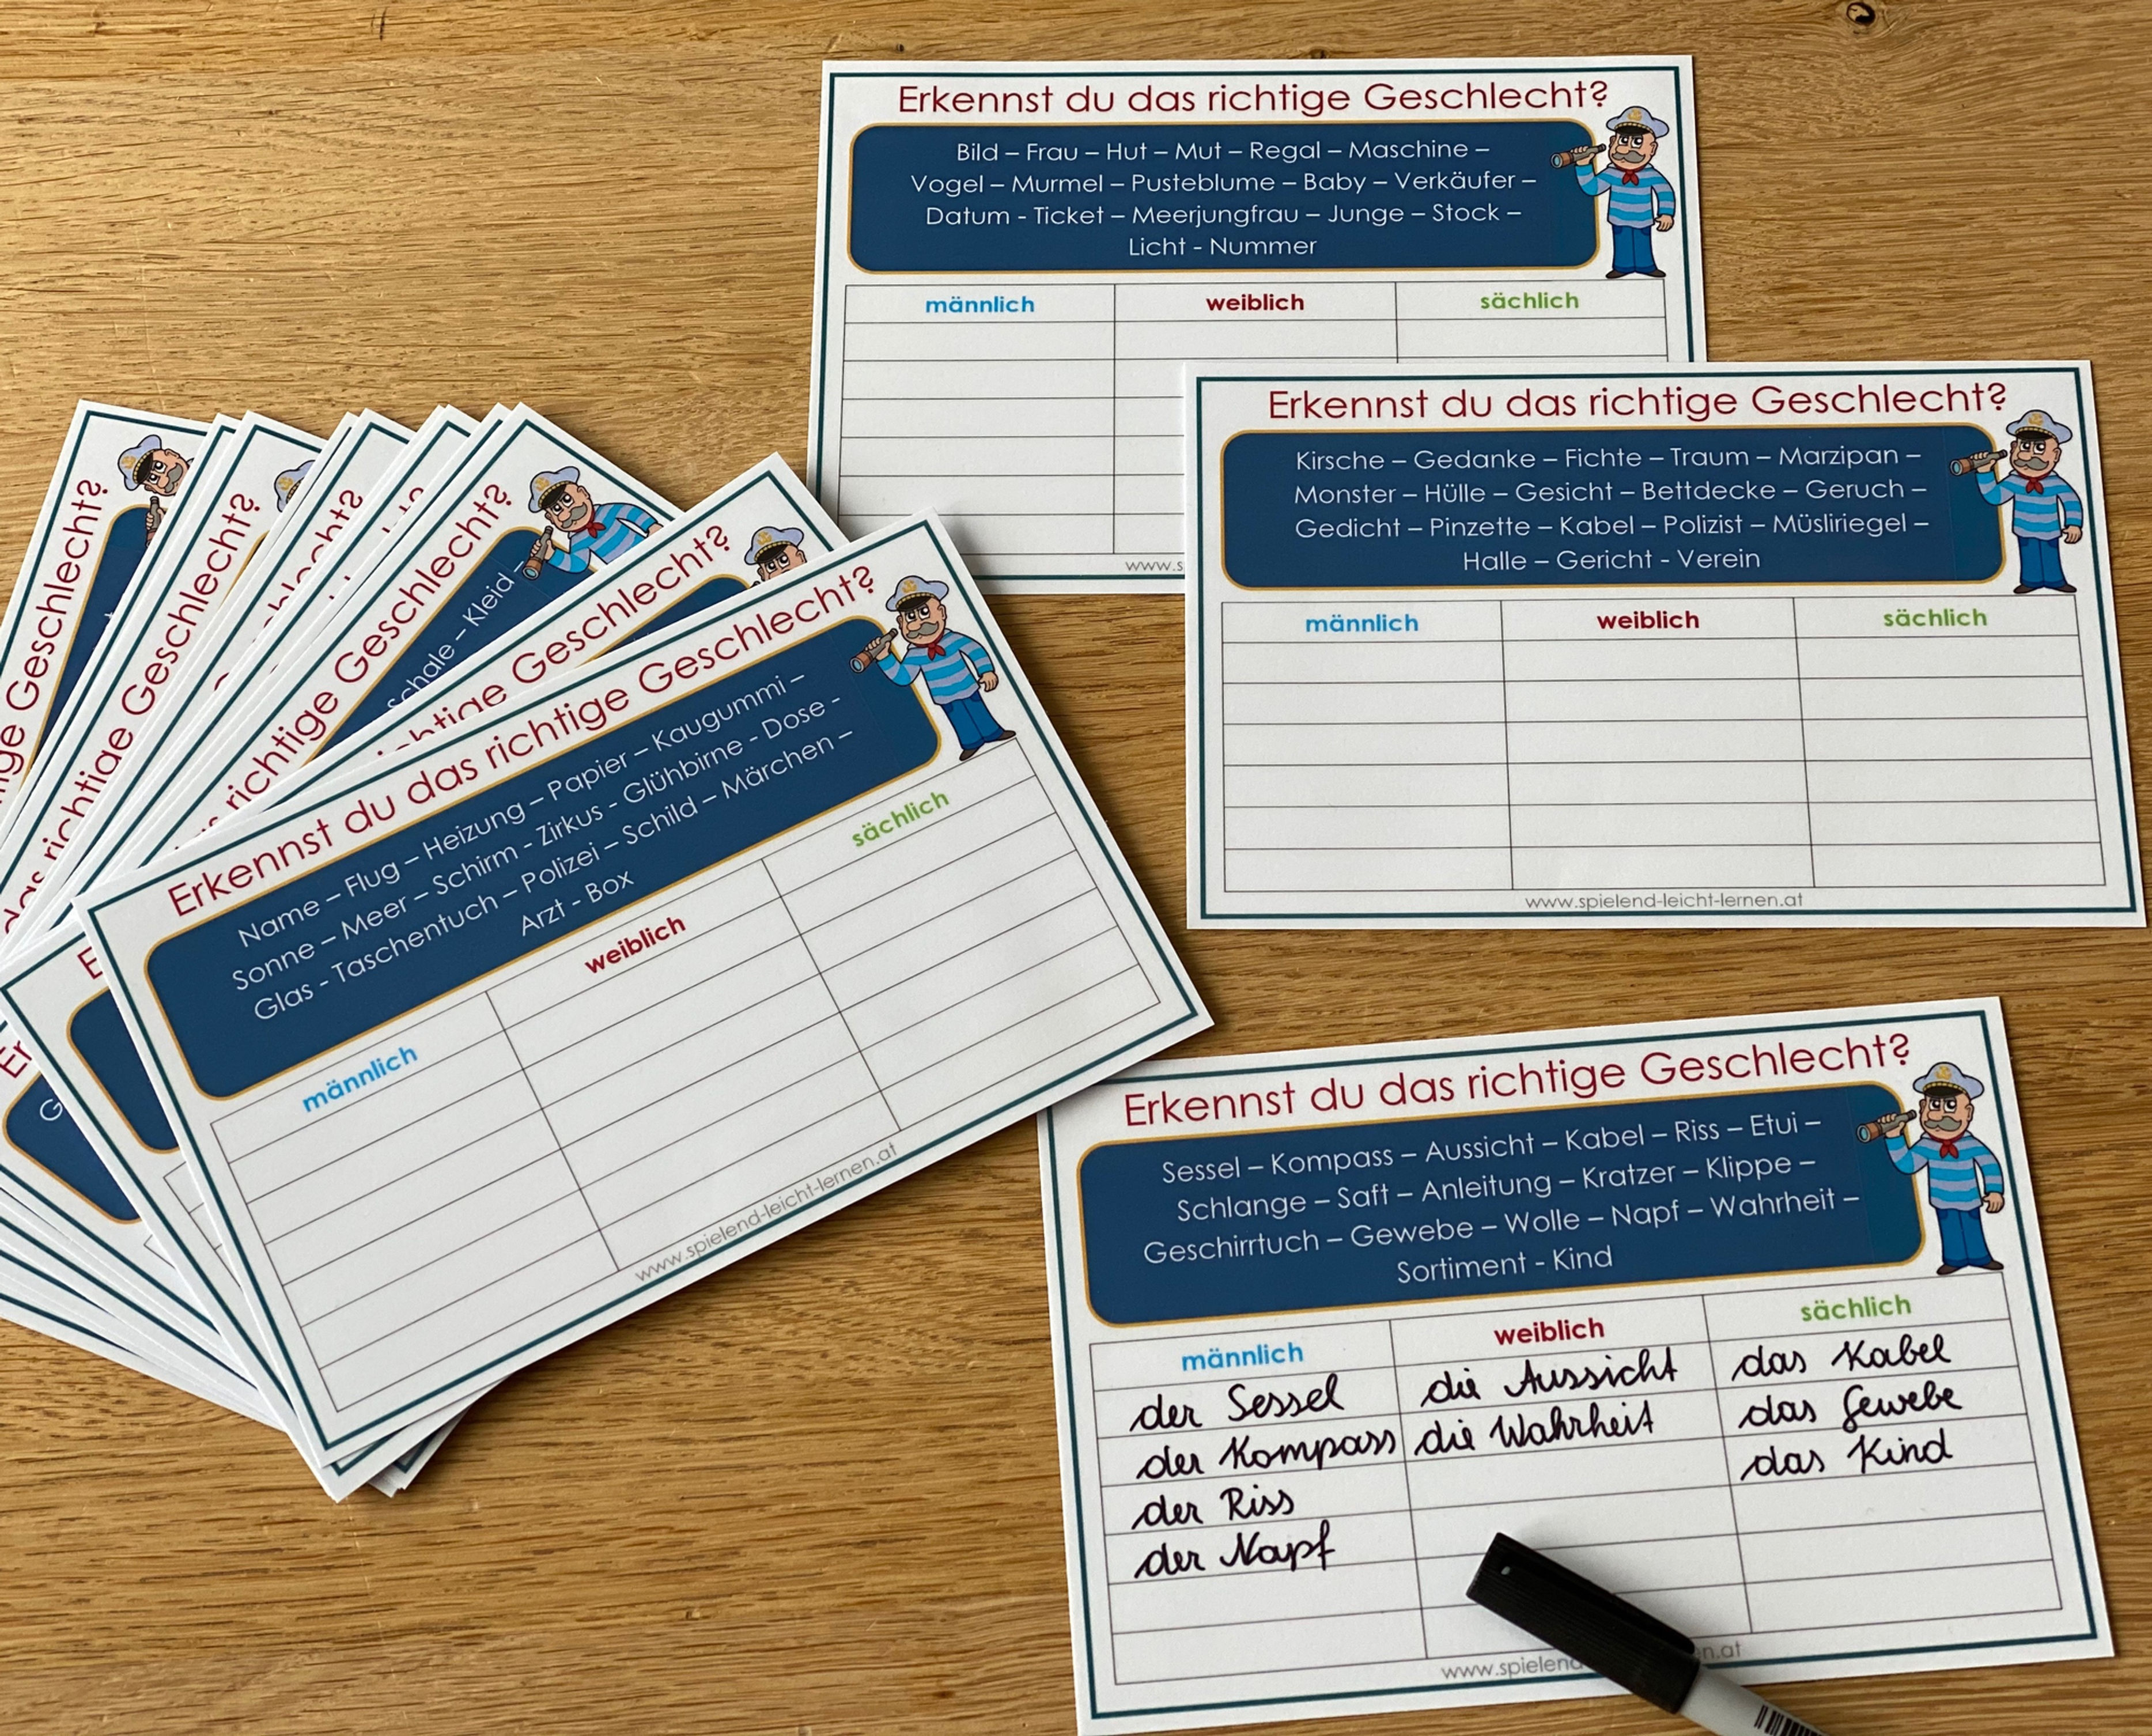 Erkennst du das richtige Geschlecht?
Bild – Frau – Hut – Mut – Regal – Maschine –
Vogel – Murmel – Pusteblume – Baby – Verkäufer –
Datum - Ticket – Meerjungfrau – Junge – Stock –
Licht - Nummer
männlich weiblich sächlich
www.s
Erkennst du das richtige Geschlecht?
Kirsche – Gedanke – Fichte – Traum – Marzipan –
Monster – Hülle – Gesicht – Bettdecke – Geruch –
Gedicht – Pinzette – Kabel – Polizist – Müsliriegel –
Halle – Gericht - Verein
männlich weiblich sächlich
www.spielend-leicht-lernen.at
Geschlecht?
richtige Geschlecht?
richtige Geschlecht?
Schale – Kleid –
Geschlecht?
Erkennst du das richtige Geschlecht?
Name – Flug – Heizung – Papier – Kaugummi –
Sonne – Meer – Schirm - Zirkus - Glühbirne - Dose -
Glas - Taschentuch – Polizei – Schild – Märchen –
Arzt - Box
männlich weiblich sächlich
www.spielend-leicht-lernen.at
Erkennst du das richtige Geschlecht?
Sessel – Kompass – Aussicht – Kabel – Riss – Etui –
Schlange – Saft – Anleitung – Kratzer – Klippe –
Geschirrtuch – Gewebe – Wolle – Napf – Wahrheit –
Sortiment - Kind
männlich weiblich sächlich
der Sessel die Aussicht das Kabel
der Kompass die Wahrheit das Gewebe
der Riss das Kind
der Napf
www.spielend n.at